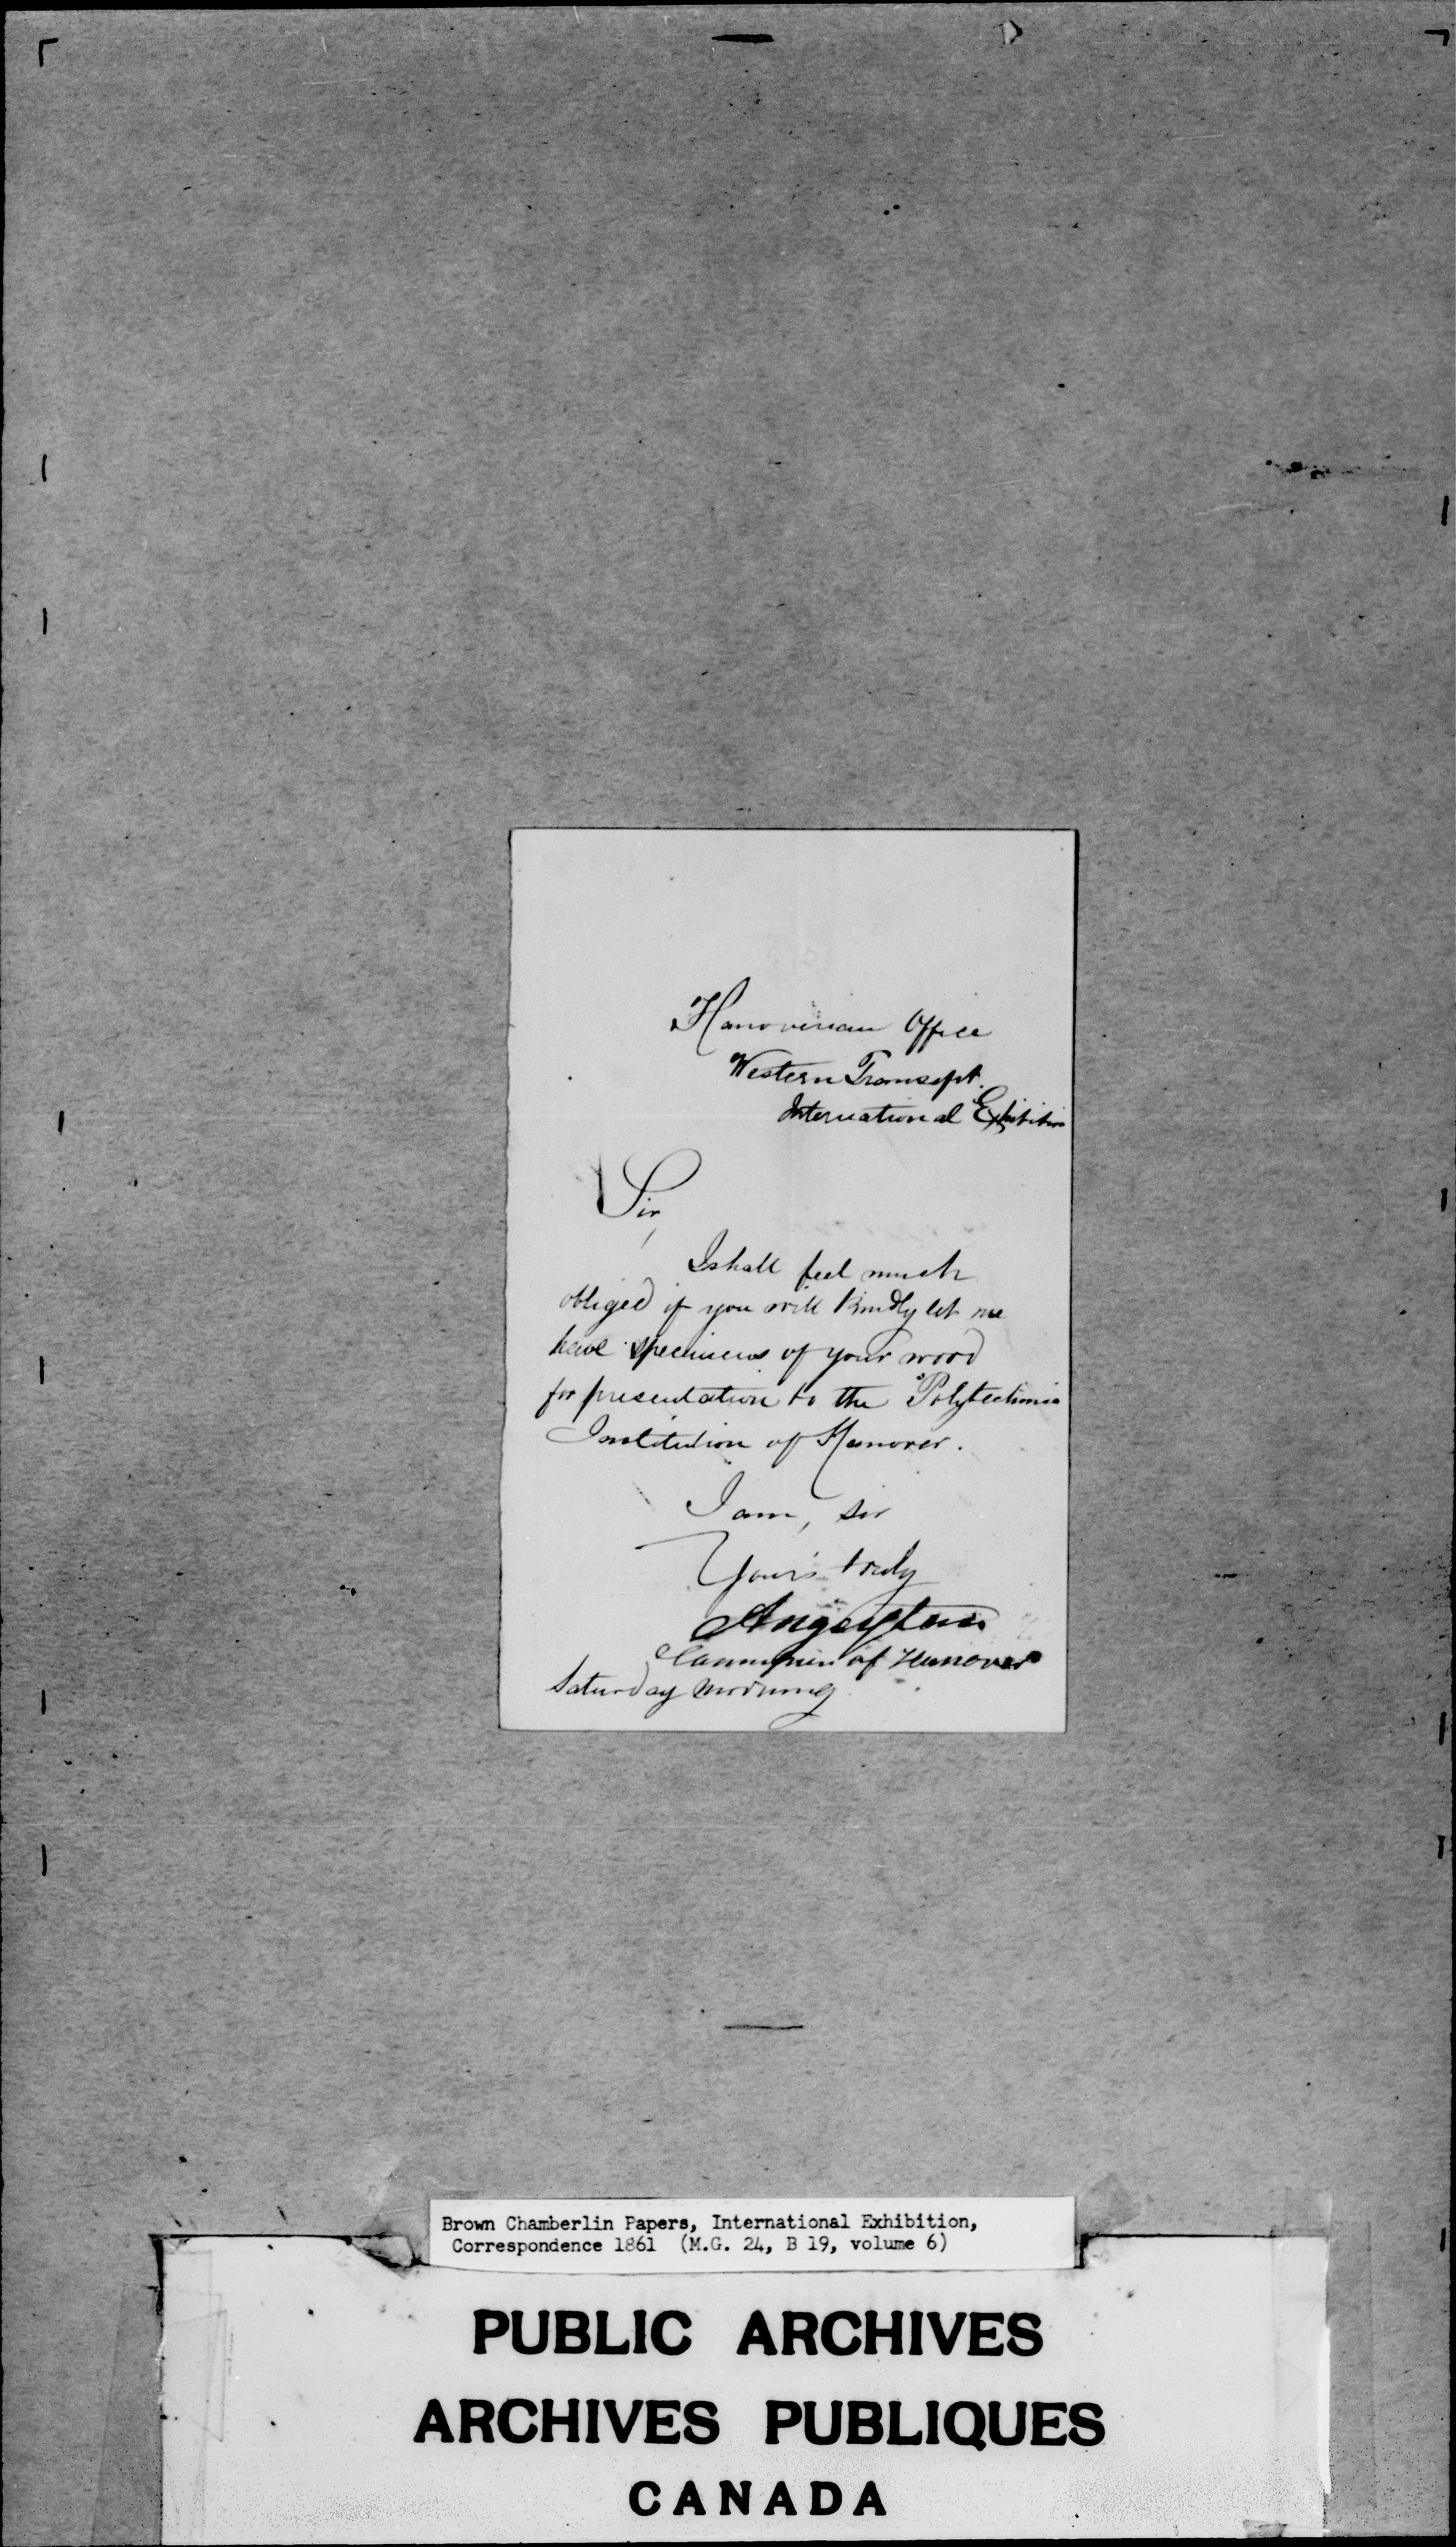 Hanoverian Office
Western Transept.
International Exhibition
Sir,
I shall feel much
obliged if you will kindly let me
have specimens of your wood
for presentation to the Polytechnic
Institution of Hanover.
I am, sir
Yours truly
of Hanover
Saturday Morning
Brown Chamberlin Papers, International Exhibition,
Correspondence 1861 (M.G. 24, B 19, volume 6)
PUBLIC ARCHIVES
ARCHIVES PUBLIQUES
CANADA